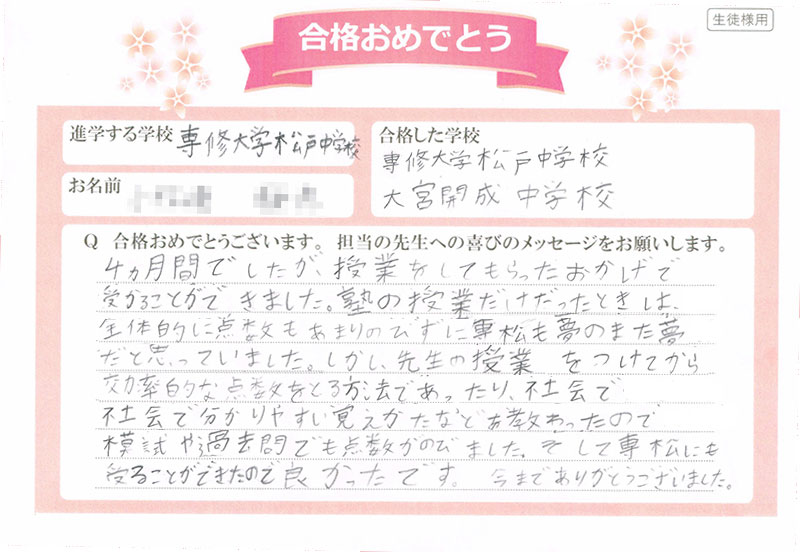 生徒様用
合格おめでとう
進学する学校 専修大学松戸中学校
合格した学校
専修大学松戸中学校
大宮開成 中学校
お名前
Q 合格おめでとうございます。 担当の先生への喜びのメッセージをお願いします。
4ヵ月間でしたが、授業をしてもらったおかげで
受かることができました。塾の授業だけだったときは、
全体的に点数もあまりのびずに専松も夢のまた夢
だと思っていました。しかし、先生の授業 をつけてから
効率的な点数をとる方法であったり、社会で
社会で分かりやすい覚えかたなどお教わったので
模試や過去問でも点数がのびました。そして専松にも
受ることができたので良かったです。 今までありがとうございました。